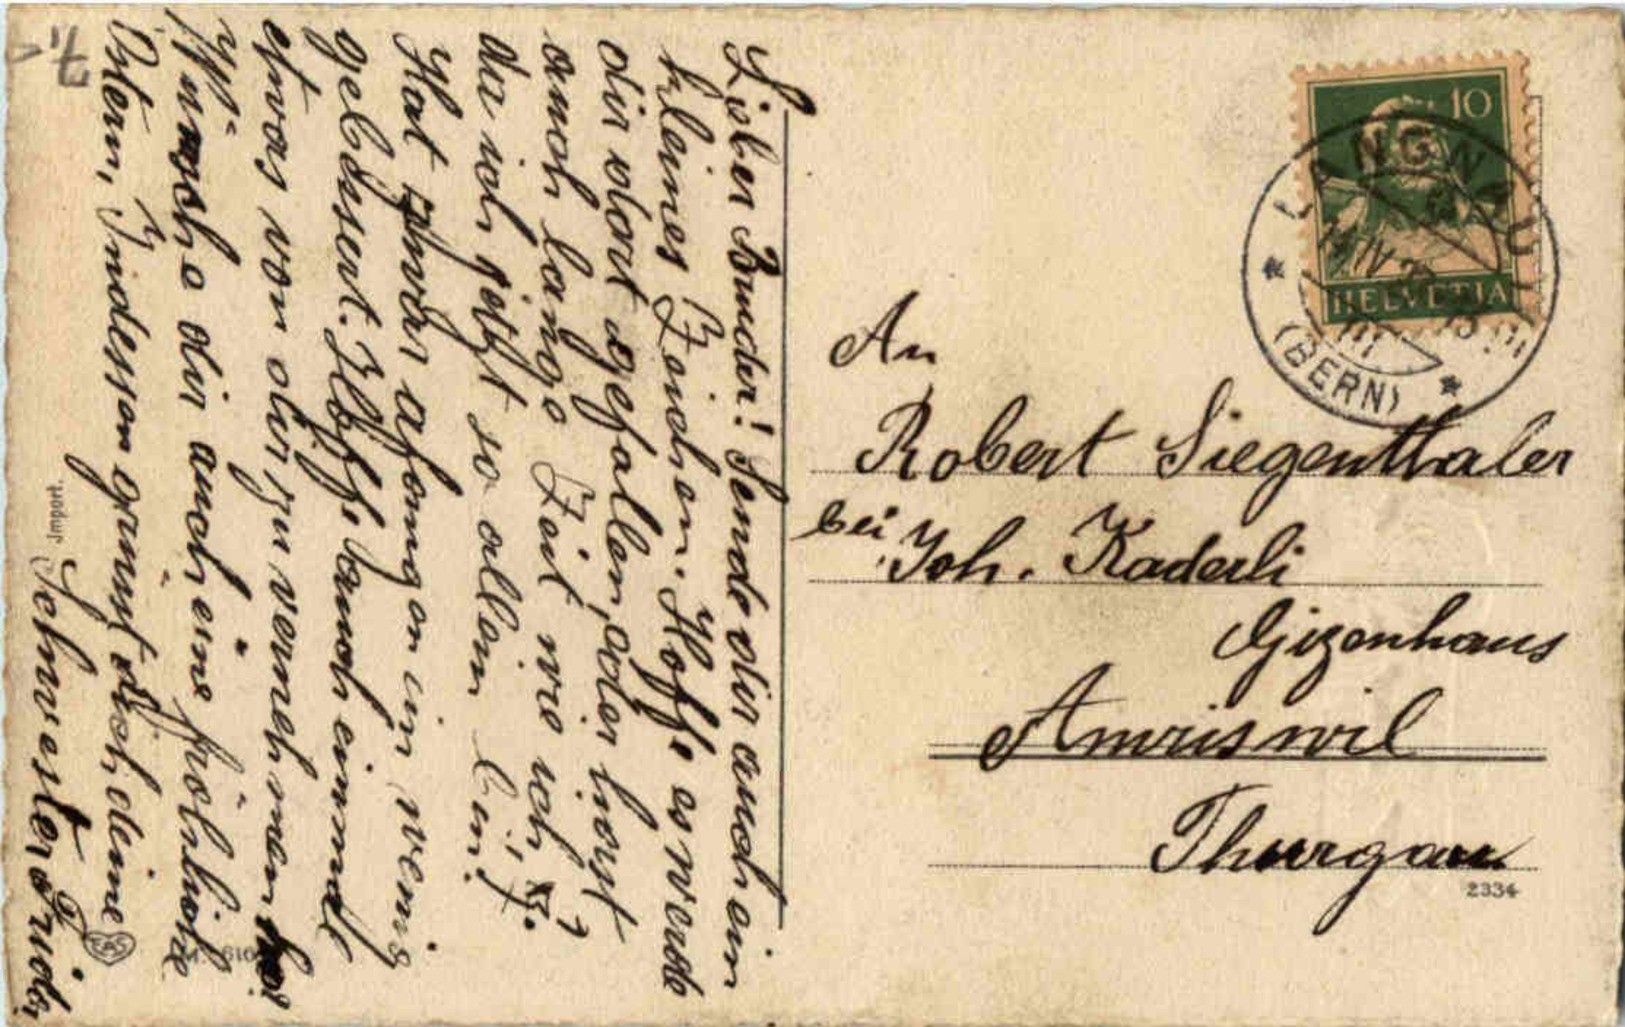 Lieber Bruder! Sende dir auch ein
kleines Zeichen. Hoffe es werde
dir dort gefallen, oder hast
auch lange Zeit wie ich?
da ich jetzt so allein bin.
Hat zwar afangen ein wenig
gebessert. Hoffe auch einmal
etwas von dir zu vernehmen
Wünsche dir auch eine fröhliche
Ostern, Indessen grüsst dich deine
Schwester Frieda
An
Robert Siegenthaler
bei Joh. Kaderli
Gizenhaus
Amriswil
Thurgau
2334
Import.
EAS
10
HELVETIA
LANGNAU
(BERN)